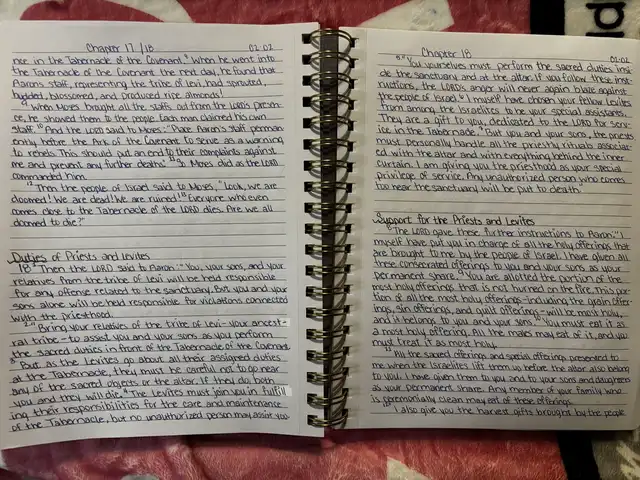 Chapter 17 | 18 02.02
nce in the Tabernacle of the Covenant. 8 When he went into
the Tabernacle of the Covenant the next day, he found that
Aaron's staff, representing the tribe of Levi, had sprouted,
budded, blossomed, and produced ripe almonds!
9 When Moses brought all the staffs out from the LORD's presen-
ce, he showed them to the people. Each man claimed his own
staff. 10 And the LORD said to Moses: "Place Aaron's staff perman-
ently before the Ark of the Covenant to serve as a warning
to rebels. This should put an end to their complaints against
me and prevent any further deaths." 11 So Moses did as the LORD
commanded him.
12 Then the people of Israel said to Moses, "Look, we are
doomed! We are dead! We are ruined! 13 Everyone who even
comes close to the Tabernacle of the LORD dies. Are we all
doomed to die?"
Duties of Priests and Levites
18 Then the LORD said to Aaron: "You, your sons, and your
relatives from the tribe of Levi will be held responsible
for any offense related to the sanctuary. But you and your
sons alone will be held responsible for violations connected
with the priesthood.
2 "Bring your relatives of the tribe of Levi-your ancest-
ral tribe-to assist you and your sons as you perform
the sacred duties in front of the Tabernacle of the Covenant.
3 But as the Levites go about all their assigned duties
at the Tabernacle, they must be careful not to go near
any of the sacred objects or the altar. If they do, both
you and they will die. 4 The Levites must join you in fulfill
ing their responsibilities for the care and maintenance
of the Tabernacle, but no unauthorized person may assist you.
Chapter 18 02.02
5 "You yourselves must perform the sacred duties insi-
de the sanctuary and at the altar. If you follow these inst-
ructions, the LORD's anger will never again blaze against
the people of Israel. 6 I myself have chosen your fellow Levites
from among the Israelites to be your special assistants.
They are a gift to you, dedicated to the LORD for serv-
ice in the Tabernacle. 7 But you and your sons, the priests
must personally handle all the priestly rituals associat-
ed with the altar and with everything behind the inner
curtain. I am giving you the priesthood as your special
privilege of service. Any unauthorized person who comes
too near the sanctuary will be put to death."
Support for the Priests and Levites
8 The LORD gave these further instructions to Aaron: "I
myself have put you in charge of all the holy offerings that
are brought to me by the people of Israel. I have given all
these consecrated offerings to you and your sons as your
permanent share. 9 You are allotted the portion of the
most holy offerings that is not burned on the fire. This por-
tion of all the most holy offerings-including the grain offer-
ings, sin offerings, and guilt offerings-will be most holy,
and it belongs to you and your sons. 10 You must eat it as
a most holy offering. All the males may eat of it, and you
must treat it as most holy.
11 "All the sacred offerings and special offerings presented to
me when the Israelites lift them up before the altar also belong
to you. I have given them to you and to your sons and daughters
as your permanent share. Any member of your family who
is ceremonially clean may eat of these offerings.
12 "I also give you the harvest gifts brought by the people